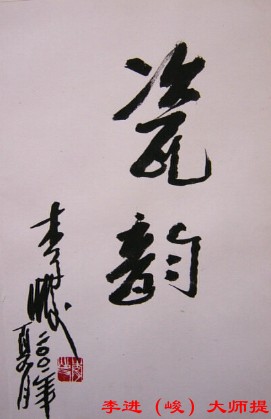 瓷韵
李峻
二〇〇一年
夏月
李进（峻）大师提